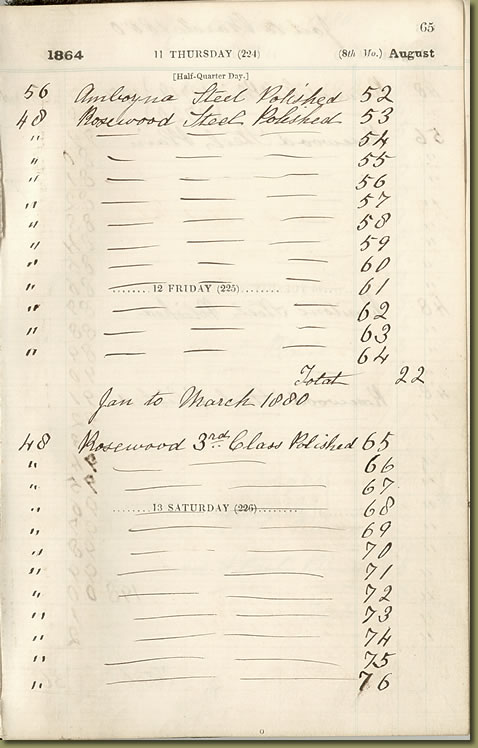 65
1864 11 THURSDAY (224) (8th Mo.) August
[Half-Quarter Day.]
56 Amboyna Steel Polished 52
48 Rosewood Steel Polished 53
" 54
" — — — 55
" — — — 56
" — — — 57
" — — — 58
" — — — 59
" — — — 60
" — — — 61
12 FRIDAY (225)
" — — — 62
" — — — 63
" — — — 64
Total 22
Jan to March 1880
48 Rosewood 3rd Class Polished 65
" — — 66
" — — 67
" — — 68
13 SATURDAY (226)
" — — 69
" — — 70
" — — 71
" — — 72
" — — 73
" — — 74
" — — 75
" — — 76